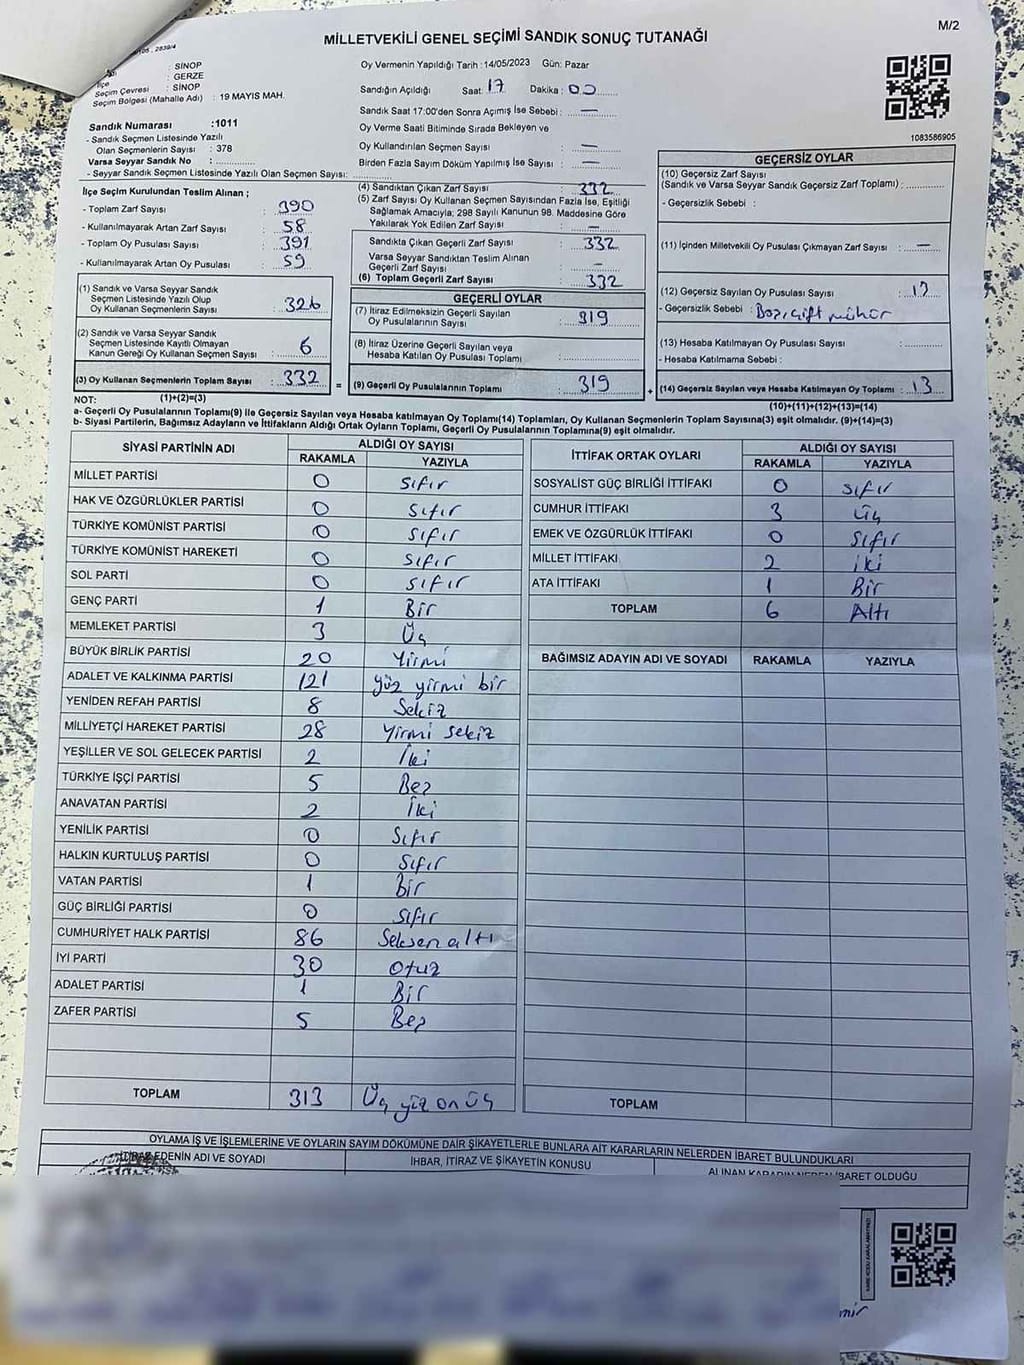 M/2
MİLLETVEKİLİ GENEL SEÇİMİ SANDIK SONUÇ TUTANAĞI
Oy Vermenin Yapıldığı Tarih : 14/05/2023 Gün: Pazar
: SİNOP
İlçe : GERZE
Seçim Çevresi : SİNOP
Seçim Bölgesi (Mahalle Adı) : 19 MAYIS MAH.
Sandık Numarası :1011
- Sandık Seçmen Listesinde Yazılı
Olan Seçmenlerin Sayısı : 378
Varsa Seyyar Sandık No :
- Seyyar Sandık Seçmen Listesinde Yazılı Olan Seçmen Sayısı:
Sandığın Açıldığı Saat: 17 Dakika : 00
Sandık Saat 17:00'den Sonra Açımış İse Sebebi : —
Oy Verme Saati Bitiminde Sırada Bekleyen ve
Oy Kullandırılan Seçmen Sayısı : —
Birden Fazla Sayım Döküm Yapılmış İse Sayısı : —
1083586905
İlçe Seçim Kurulundan Teslim Alınan ;
- Toplam Zarf Sayısı : 390
- Kullanılmayarak Artan Zarf Sayısı : 58
- Toplam Oy Pusulası Sayısı : 391
- Kullanılmayarak Artan Oy Pusulası : 59
(1) Sandık ve Varsa Seyyar Sandık
Seçmen Listesinde Yazılı Olup
Oy Kullanan Seçmenlerin Sayısı : 326
(2) Sandık ve Varsa Seyyar Sandık
Seçmen Listesinde Kayıtlı Olmayan
Kanun Gereği Oy Kullanan Seçmen Sayısı : 6
(3) Oy Kullanan Seçmenlerin Toplam Sayısı : 332
(1)+(2)=(3)
(4) Sandıktan Çıkan Zarf Sayısı : 332
(5) Zarf Sayısı Oy Kullanan Seçmen Sayısından Fazla İse, Eşitliği
Sağlamak Amacıyla; 298 Sayılı Kanunun 98. Maddesine Göre
Yakılarak Yok Edilen Zarf Sayısı : —
Sandıkta Çıkan Geçerli Zarf Sayısı : 332
Varsa Seyyar Sandıktan Teslim Alınan
Geçerli Zarf Sayısı : —
(6) Toplam Geçerli Zarf Sayısı : 332
GEÇERLİ OYLAR
(7) İtiraz Edilmeksizin Geçerli Sayılan
Oy Pusulalarının Sayısı : 319
(8) İtiraz Üzerine Geçerli Sayılan veya
Hesaba Katılan Oy Pusulası Toplamı :
= (9) Geçerli Oy Pusulalarının Toplamı : 319
GEÇERSİZ OYLAR
(10) Geçersiz Zarf Sayısı
(Sandık ve Varsa Seyyar Sandık Geçersiz Zarf Toplamı) :
- Geçersizlik Sebebi :
(11) İçinden Milletvekili Oy Pusulası Çıkmayan Zarf Sayısı : —
(12) Geçersiz Sayılan Oy Pusulası Sayısı : 13
- Geçersizlik Sebebi : mühür
(13) Hesaba Katılmayan Oy Pusulası Sayısı :
- Hesaba Katılmama Sebebi :
+ (14) Geçersiz Sayılan veya Hesaba Katılmayan Oy Toplamı : 13
(10)+(11)+(12)+(13)=(14)
NOT:
a- Geçerli Oy Pusulalarının Toplamı(9) ile Geçersiz Sayılan veya Hesaba katılmayan Oy Toplamı(14) Toplamları, Oy Kullanan Seçmenlerin Toplam Sayısına(3) eşit olmalıdır. (9)+(14)=(3)
b- Siyasi Partilerin, Bağımsız Adayların ve İttifakların Aldığı Ortak Oyların Toplamı, Geçerli Oy Pusulalarının Toplamına(9) eşit olmalıdır.
SİYASİ PARTİNİN ADI ALDIĞI OY SAYISI
RAKAMLA YAZIYLA
MİLLET PARTİSİ 0 Sıfır
HAK VE ÖZGÜRLÜKLER PARTİSİ 0 Sıfır
TÜRKİYE KOMÜNİST PARTİSİ 0 Sıfır
TÜRKİYE KOMÜNİST HAREKETİ 0 Sıfır
SOL PARTİ 0 Sıfır
GENÇ PARTİ 1 Bir
MEMLEKET PARTİSİ 3 Üç
BÜYÜK BİRLİK PARTİSİ 20 Yirmi
ADALET VE KALKINMA PARTİSİ 121 yüz yirmi bir
YENİDEN REFAH PARTİSİ 8 Sekiz
MİLLİYETÇİ HAREKET PARTİSİ 28 Yirmi sekiz
YEŞİLLER VE SOL GELECEK PARTİSİ 2 İki
TÜRKİYE İŞÇİ PARTİSİ 5 Beş
ANAVATAN PARTİSİ 2 İki
YENİLİK PARTİSİ 0 Sıfır
HALKIN KURTULUŞ PARTİSİ 0 Sıfır
VATAN PARTİSİ 1 bir
GÜÇ BİRLİĞİ PARTİSİ 0 Sıfır
CUMHURİYET HALK PARTİSİ 86 Seksen altı
İYİ PARTİ 30 Otuz
ADALET PARTİSİ 1 Bir
ZAFER PARTİSİ 5 Beş
TOPLAM 313 Üç yüz on üç
İTTİFAK ORTAK OYLARI ALDIĞI OY SAYISI
RAKAMLA YAZIYLA
SOSYALİST GÜÇ BİRLİĞİ İTTİFAKI 0 Sıfır
CUMHUR İTTİFAKI 3 Üç
EMEK VE ÖZGÜRLÜK İTTİFAKI 0 Sıfır
MİLLET İTTİFAKI 2 iki
ATA İTTİFAKI 1 Bir
TOPLAM 6 Altı
BAĞIMSIZ ADAYIN ADI VE SOYADI RAKAMLA YAZIYLA
TOPLAM
OYLAMA İŞ VE İŞLEMLERİNE VE OYLARIN SAYIM DÖKÜMÜNE DAİR ŞİKAYETLERLE BUNLARA AİT KARARLARIN NELERDEN İBARET BULUNDUKLARI
İTİRAZ EDENİN ADI VE SOYADI İHBAR, İTİRAZ VE ŞİKAYETİN KONUSU ALINAN KARARIN NEDEN İBARET OLDUĞU